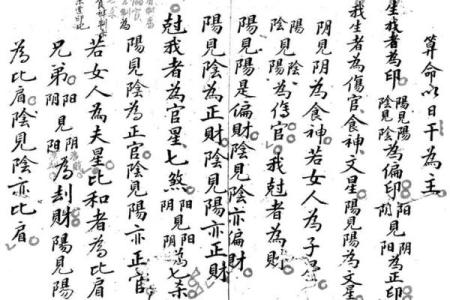 算命以日干為主
生我者為印陽見陽陰見陰為偏印阳見阴阴見阳為正印
我生者為傷官食神文星陽見陽為文星
阴見阴為食神若女人為子星
陽見陰陰見陽為傷官我尅者為財
陽見陽是偏財陰見陰亦偏財
陽見陰為正財陰見陽亦正財
尅我者為官星七煞阳見阳阴見阴為七杀
陽見陰為正官陰見陽亦正官
若女人為夫星比和者為比肩
兄弟阳見阴阴見阳為刦財陽見陽
為比肩陰見陰亦比肩